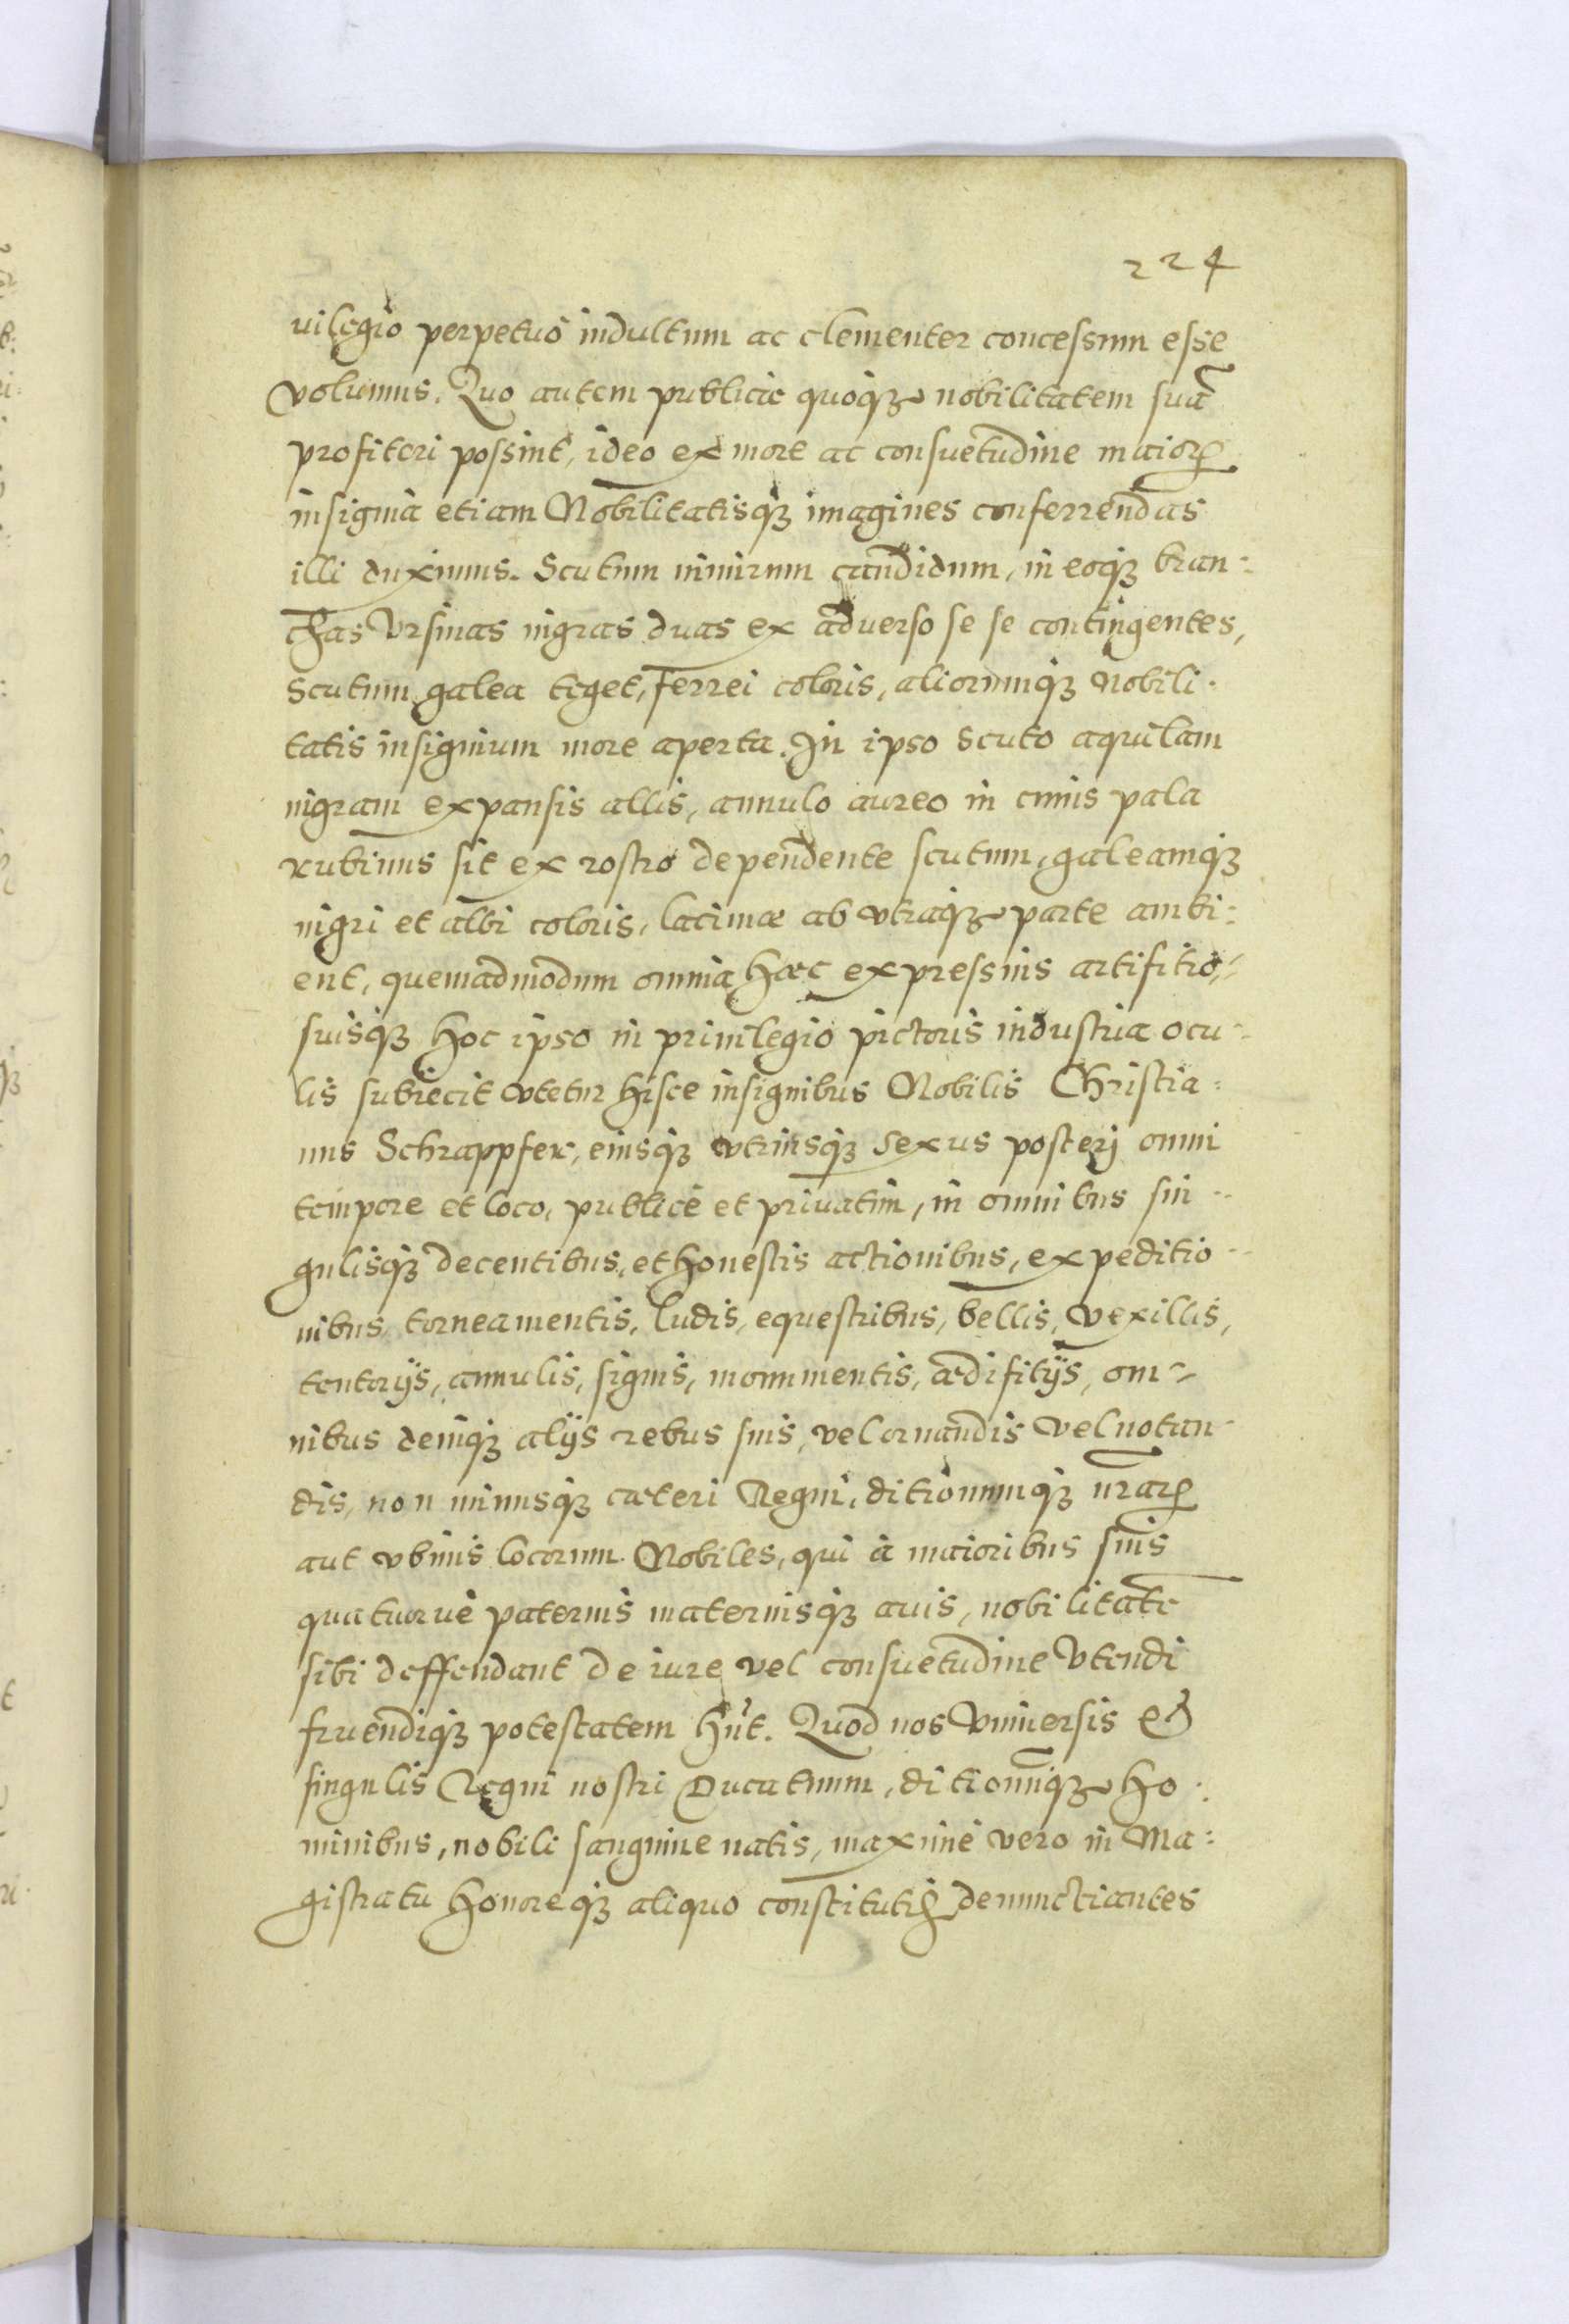 224
uilegio perpetuo indultum ac clementer concessum esse
volumus. Quo autem publicè quoqꝫ nobilitatem suã
profiteri possint, ideo ex more ac consuetudine maioꝝ
insignia etiam Nobilitatisqꝫ imagines conferrendas
illi duximus. Scutum nimirum candidum, in eoqꝫ bran:
chas Vrsinas nigras duas ex aduerso se se contingentes,
scutum galea teget, ferrei coloris, aliorumqꝫ nobili.
tatis insignium more aperta. In ipso scuto aquilam
nigram expansis allis, annulo aureo in cuius pala
rubinus sit ex rostro dependente scutum, galeamqꝫ
nigri et albi coloris, laciniæ ab vtraqꝫ parte ambi:
ent, quemadmodum omnia hæc expressius artifitio,-
suisqꝫ hoc ipso in priuilegio pictoris industria ocu-
lis subiecit vtetur hisce insignibus Nobilis Christia:
nus Schrappfer, eiusqꝫ vtriusqꝫ sexus posterj omni
tempore et loco, publicè et priuatim, in omnibus sin-
gulisqꝫ decentibus, et honestis actionibus, expeditio-
nibus, torneamentis, ludis, equestribus, bellis, vexillis,
tentorijs, annulis, signis, monumentis, ædifitijs, om-
nibus deniqꝫ alijs rebus suis, vel ornandis vel notan-
dis, non minusqꝫ cæteri Regni, ditionumqꝫ nr̃aꝝ
aut vbiuis locorum Nobiles, qui à maioribus suis
quatuorue paternis maternisqꝫ auis, nobilitatẽ
sibi deffendant de iure vel consuetudine vtendi
fruendiqꝫ potestatem hñt. Quod nos Vniuersis et
singulis Regni nostri Ducatuum, ditionũqꝫ ho.
minibus, nobili sanguine natis, maximè vero in Ma:
gistratu honoreqꝫ aliquo constitutis denunctiantes